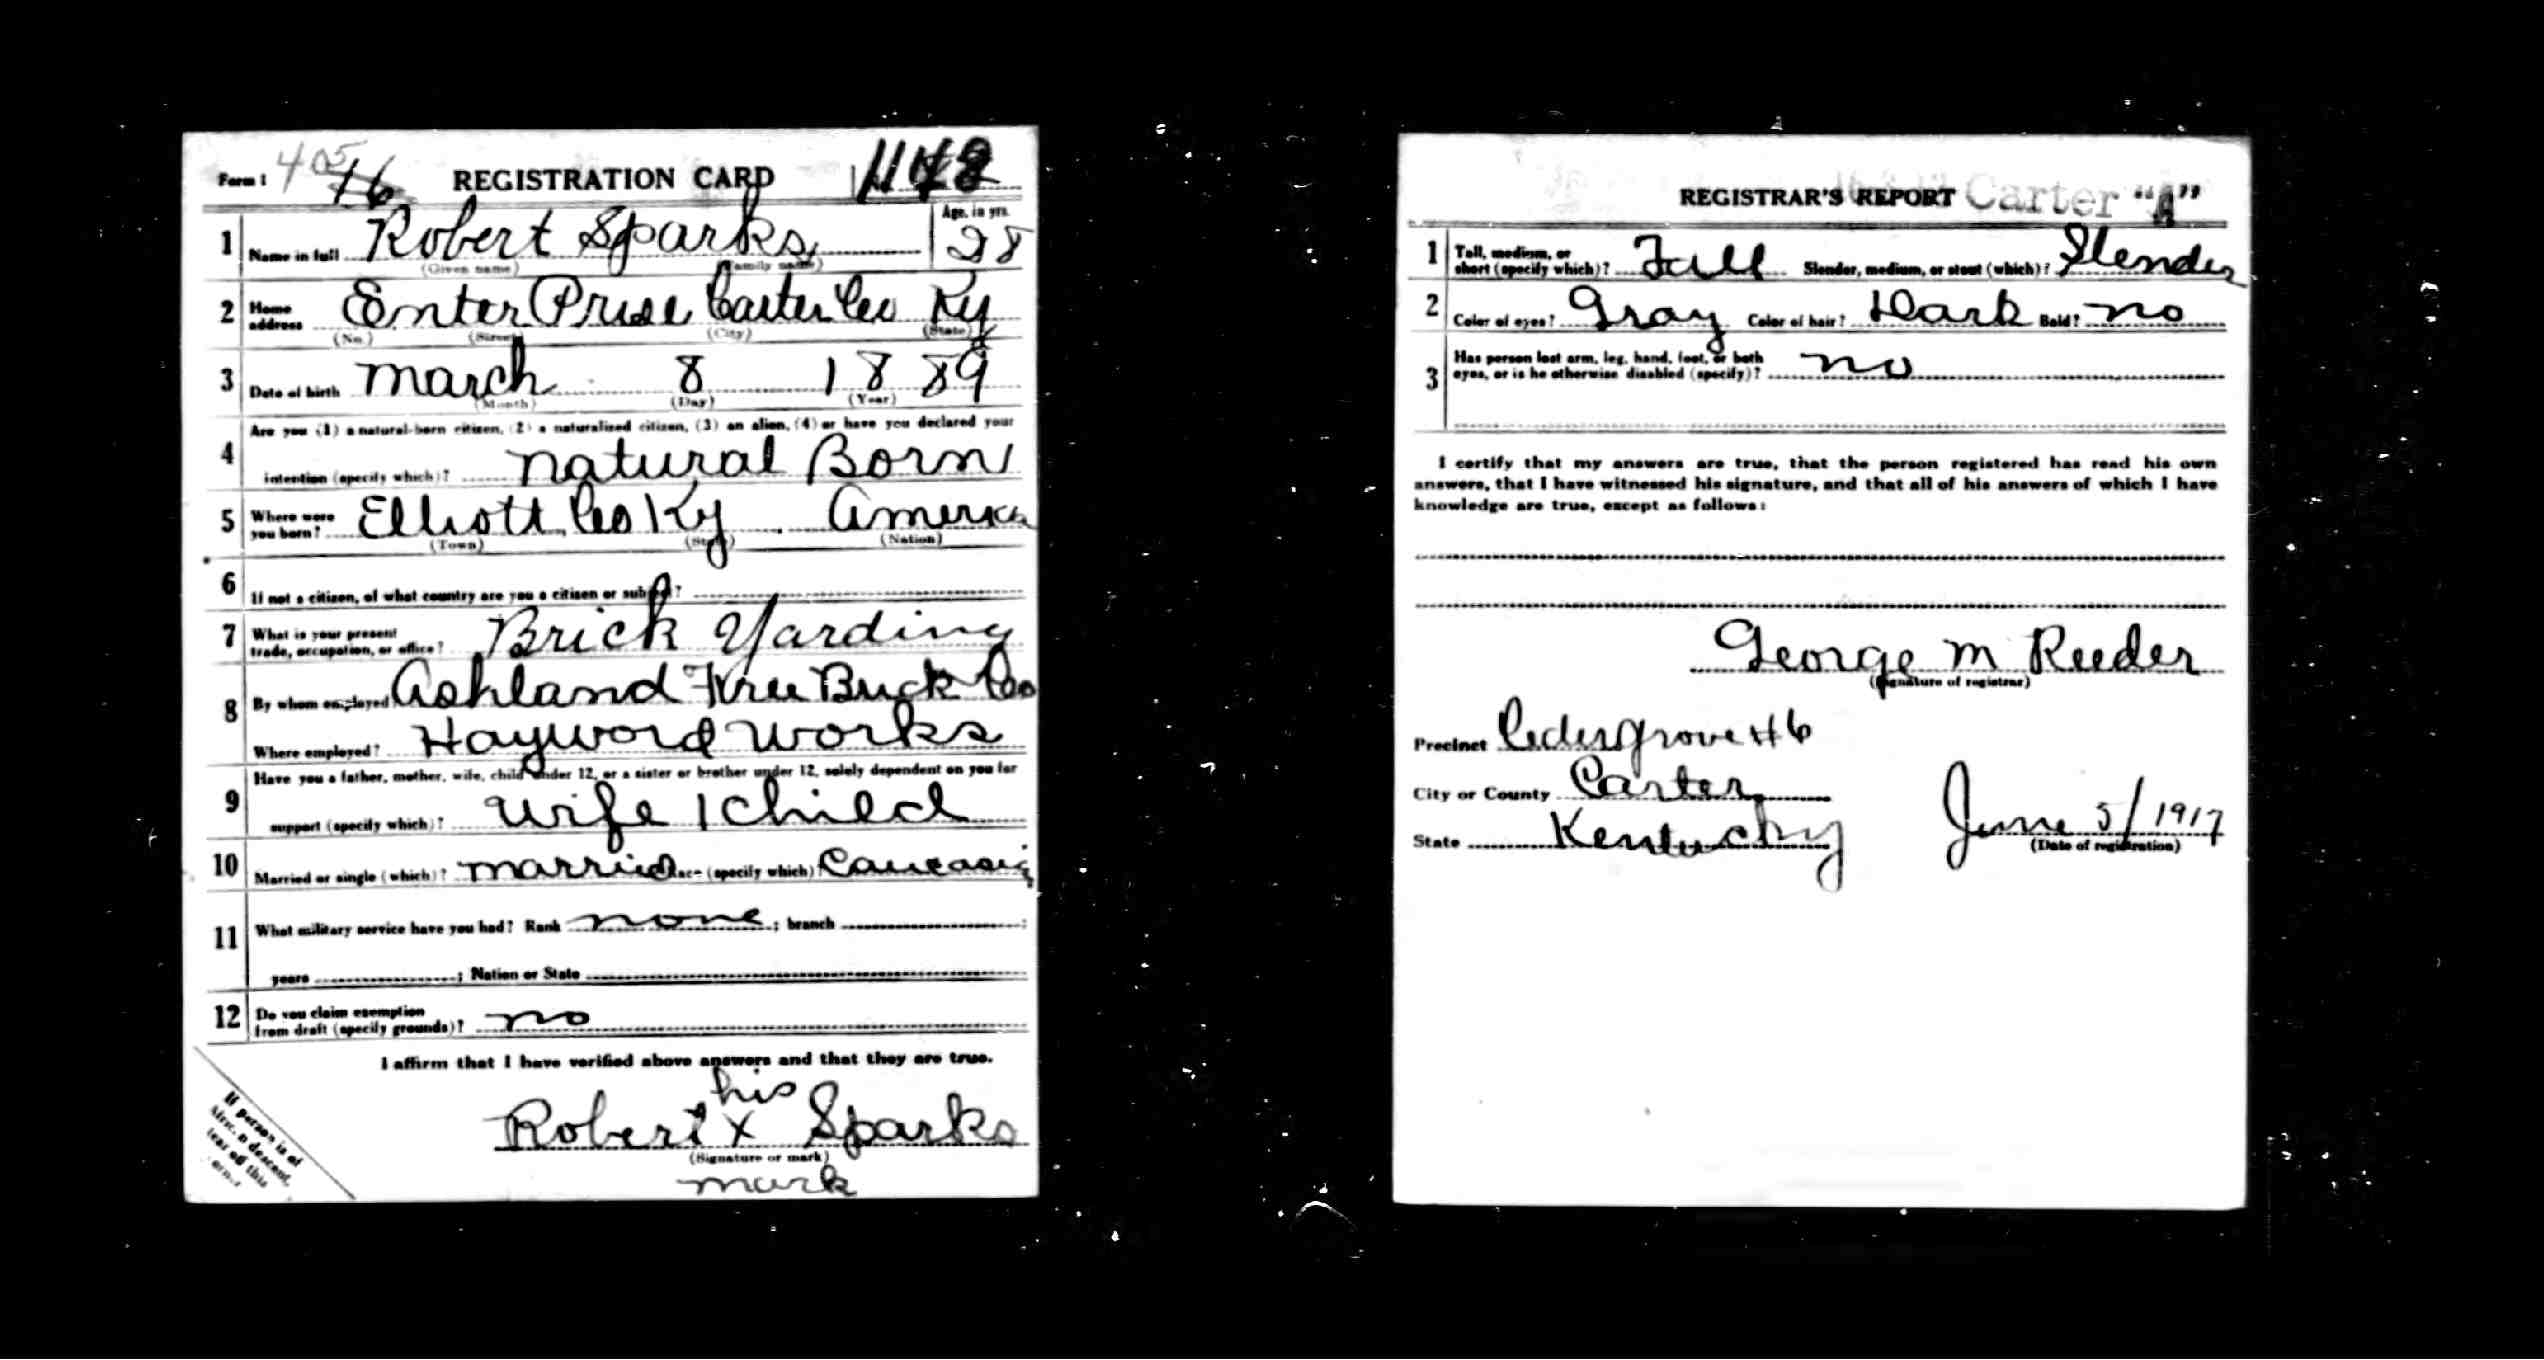 Form 1 405 16 REGISTRATION CARD
1 Name in full Robert Sparks Age, in yrs. 28
(Given name) (Family name)
2 Home address Enter Prise Carter Co Ky
(No.) (Street) (City) (State)
3 Date of birth March 8 1889
(Month) (Day) (Year)
4 Are you (1) a natural-born citizen, (2) a naturalized citizen, (3) an alien, (4) or have you declared your
intention (specify which)? Natural Born
5 Where were you born? Elliott Co Ky America
(Town) (State) (Nation)
6 If not a citizen, of what country are you a citizen or subject?
7 What is your present trade, occupation, or office? Brick Yarding
8 By whom employed Ashland Fire Brick Co
Where employed? Hayword Works
9 Have you a father, mother, wife, child under 12, or a sister or brother under 12, solely dependent on you for
support (specify which)? Wife 1 Child
10 Married or single (which)? Married Race (specify which)
11 What military service have you had? Rank none ; branch ;
years ; Nation or State
12 Do you claim exemption from draft (specify grounds)? no
I affirm that I have verified above answers and that they are true.
his
Robert X Sparks
(Signature or mark)
mark
If person is of
African descent,
tear off this
corner
REGISTRAR'S REPORT Carter "A"
1 Tall, medium, or short (specify which)? Tall Slender, medium, or stout (which)? Slender
2 Color of eyes? Gray Color of hair? Dark Bald? no
3 Has person lost arm, leg, hand, foot, or both
eyes, or is he otherwise disabled (specify)? no
I certify that my answers are true, that the person registered has read his own
answers, that I have witnessed his signature, and that all of his answers of which I have
knowledge are true, except as follows:
George M Reeder
(Signature of registrar)
Precinct Cedergrove #6
City or County Carter
State Kentucky June 5/1917
(Date of registration)